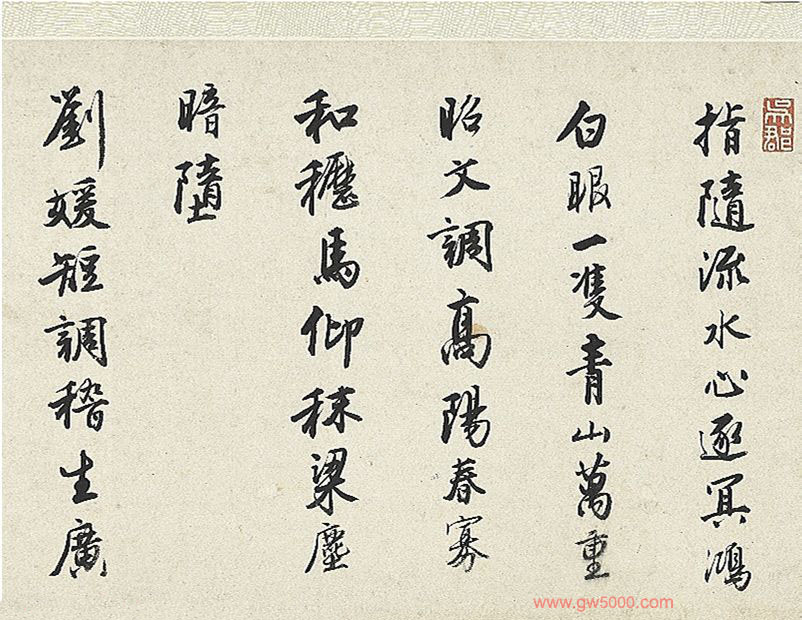 吳郡
指隨流水心逐冥鴻
白眼一隻青山萬重
昭文調高陽春寡
和櫪馬仰秣梁塵
暗墮
劉媛短調稽生廣
www.gw5000.com